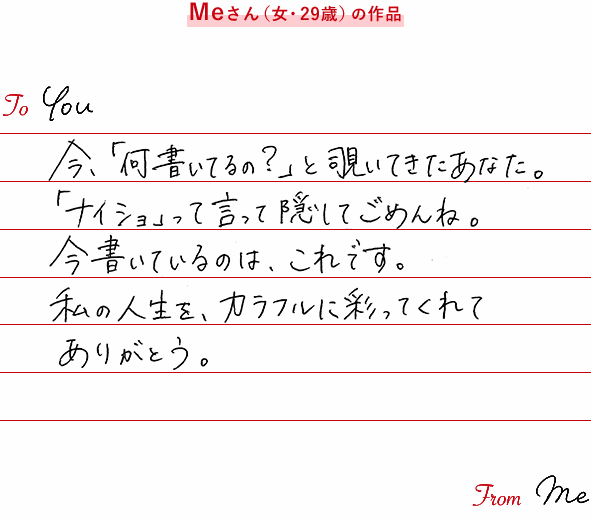 Meさん（女・29歳）の作品
To You
今、「何書いてるの？」と覗いてきたあなた。
「ナイショ」って言って隠してごめんね。
今書いているのは、これです。
私の人生を、カラフルに彩ってくれて
ありがとう。
From Me